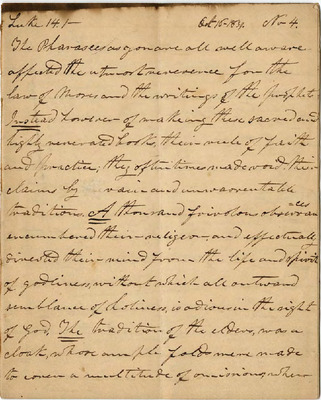 Luke 14.1— Oct. 15. 1839. No- 4.
The Pharasees as you are all well aware
affected the utmost reverence for the
law of Moses and the writings of the Prophets
Instead however of making these sacred and
highly venerated books, their rule of faith
and practice, they often times made void their
claims by vain and unwarrantable
traditions. A thousand frivolous observances
encumbered their religion and effectually
diverted their mind from the life and spirit
of godliness, without which all outward
semblance of holiness, is odious in the sight
of God. The tradition of the elders, was a
cloak, whose ample folds were made
to cover a multitude of omissions, when